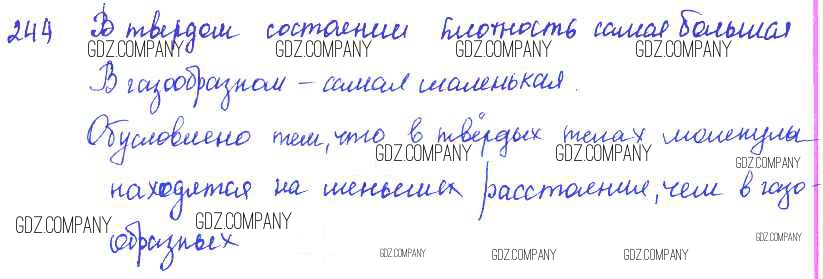 244 В твердом состоянии плотность самая большая
В газообразном – самая маленькая.
Обусловлено тем, что в твёрдых телах молекулы
находятся на меньших расстояние, чем в газо-
образных
GDZ.COMPANY GDZ.COMPANY GDZ.COMPANY GDZ.COMPANY
GDZ.COMPANY GDZ.COMPANY GDZ.COMPANY
GDZ.COMPANY GDZ.COMPANY
GDZ.COMPANY GDZ.COMPANY GDZ.COMPANY GDZ.COMPANY GDZ.COMPANY